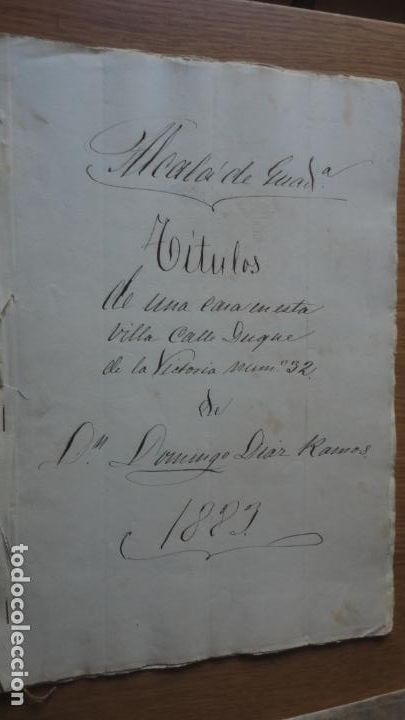 Alcalá de Guad.ª
Títulos
de una casa en esta
Villa Calle Duque
de la Victoria num.º 32.
de
D.n Domingo Diaz Ramos.
1883.
todocoleccion.net